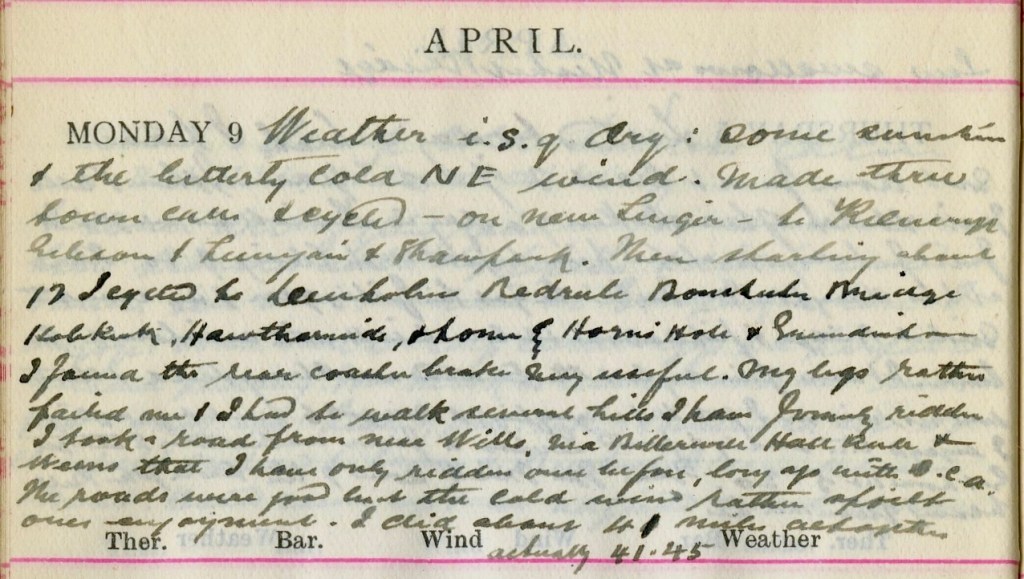 APRIL.
MONDAY 9 Weather i.s.q. dry: some sunshine
& the bitterly cold NE wind. Made three
town calls & cycled - on new Singer - to
& & Shawpark. Then starting about
12 I cycled to Denholm Bedrule Bonchester Bridge
Kirk, Hawthornside, & home by Hornshole &
I found the rear coaster brake very useful. My legs rather
failed me & I had to walk several hills I have formerly ridden
I took a road from near Wells, via Billerwell Hall Rule &
Weens that I have only ridden once before, long ago with D.C.A.
The roads were good but the cold wind rather spoilt
ones enjoyment. I did about 41 miles altogether
Ther. Bar. Wind Weather
actually 41.45